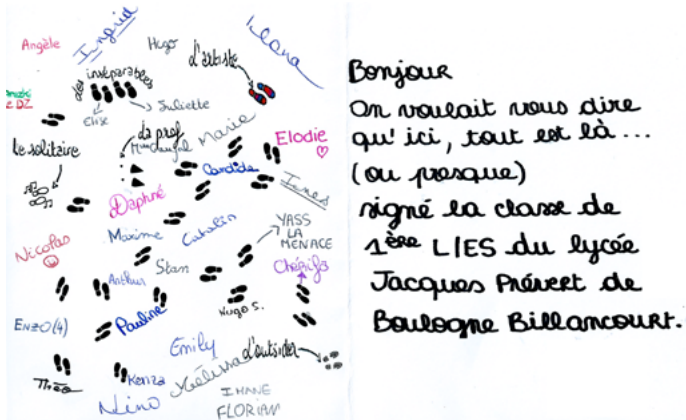 Angèle
Ingrid
Hugo
L'artiste
Ilana
Les inséparables
Elise
Juliette
DZ
Le solitaire
La prof
Marie
Elodie
Candide
Ines
Daphné
Maxime
Catalin
YASS
LA
MENACE
Nicolas
Stan
Chérifa
Arthur
Hugo S.
ENZO (4)
Pauline
Emily
L'outsider
Théo
Kenza
Mélissa
Nino
IMANE
FLORIAN
Bonjour
On voulait vous dire
qu'ici, tout est là...
(ou presque)
signé la classe de
1ère L/ES du lycée
Jacques Prévert de
Boulogne Billancourt.